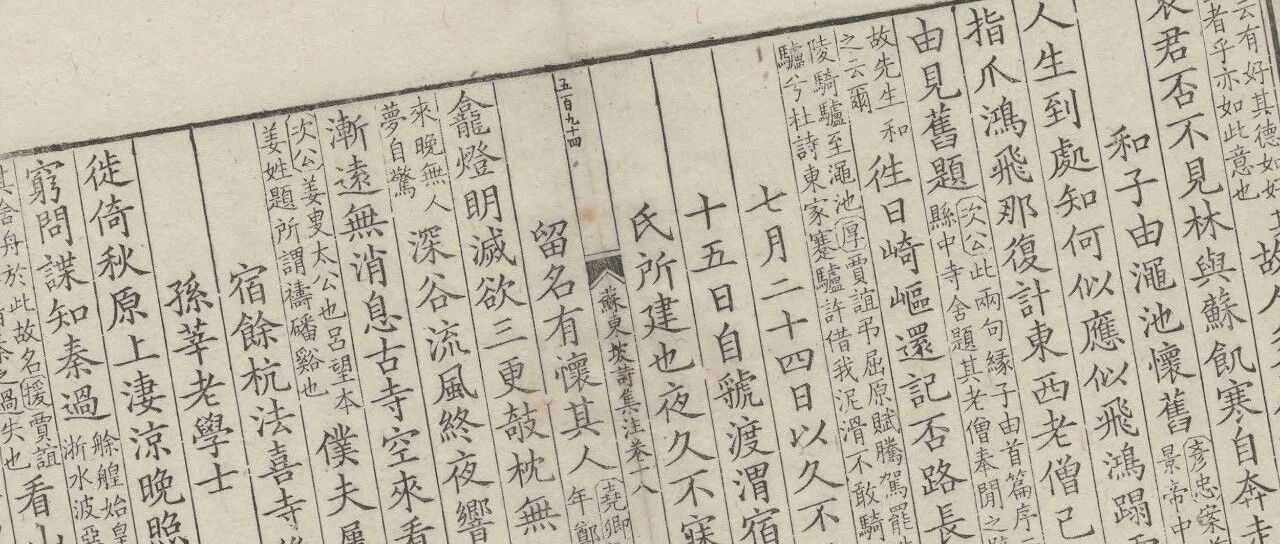 云有好其德如如
者乎亦如此意也
其故人
君否不見林與蘇飢寒自奔走
和子由澠池懷舊
彥忠案
景帝中
人生到處知何似應似飛鴻蹋
指爪鴻飛那復計東西老僧已
由見舊題
次公此兩句縁子由首篇序
縣中寺舍題其老僧奉閒之
故先生和
之云爾
徃日崎嶇還記否路長
陵騎驢至澠池厚賈誼弔屈原賦騰駕罷
驢兮杜詩東家蹇驢許借我泥滑不敢騎
七月二十四日以久不
十五日自虢渡渭宿
氏所建也夜久不寐
蘇東坡詩集注卷一八
五百九十四
留名有懷其人
堯卿
年鄭
龕燈明滅欲三更敧枕無
來晚無人
夢自驚
深谷流風終夜響
漸遠無消息古寺空來看
次公姜叟太公也呂望本
姜姓題所謂禱磻谿也
僕夫屢
宿餘杭法喜寺
孫莘老學士
徙倚秋原上凄涼晚照
窮問諜知秦過
艅艎始皇
浙水波惡
看山
其舍舟於此故名援賈誼
有秦之過失也